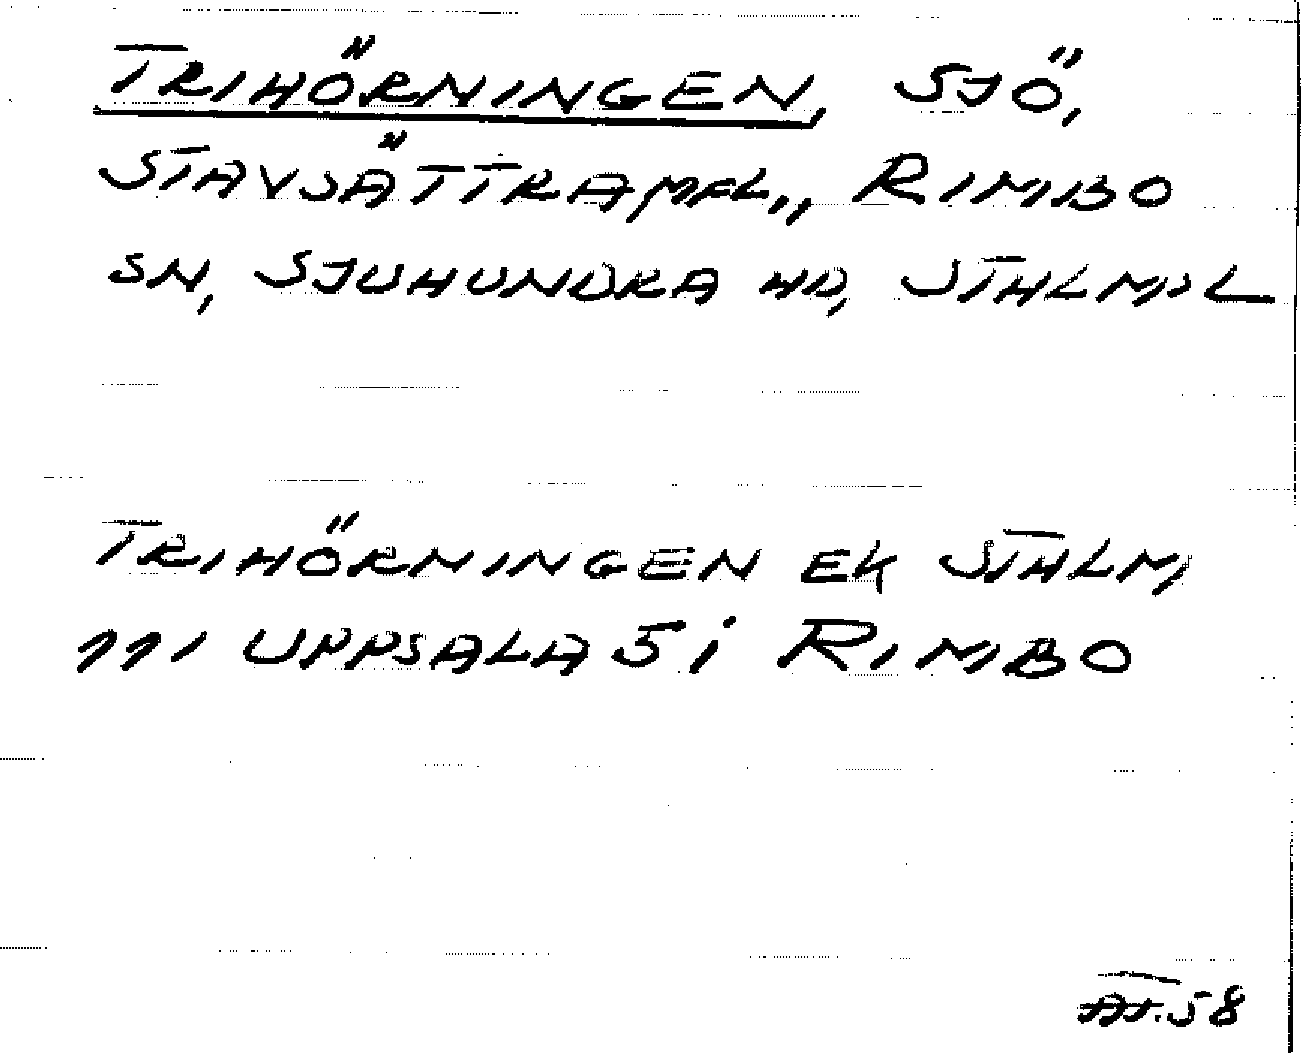 TRIHÖRNINGEN, SJÖ,
STAVSÄTTRA MFL., RIMBO
SN, SJUHUNDRA HD, STHLMS L
TRIHÖRNINGEN EK STHLM,
111 UPPSALA 5 i RIMBO
58